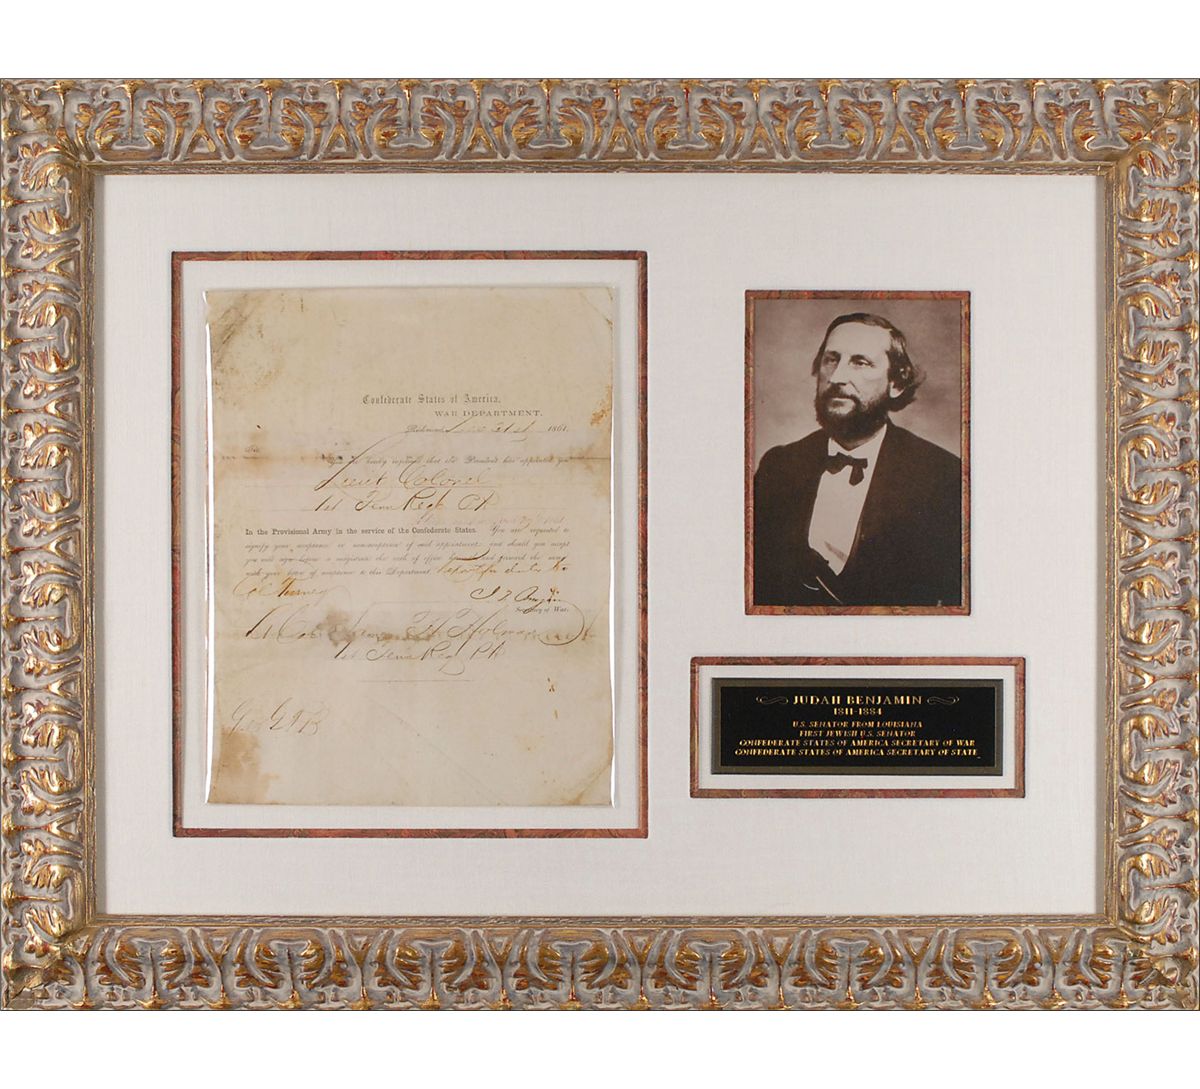 Confederate States of America,
WAR DEPARTMENT,
Richmond, 1861.
Sir:
You are hereby informed that the President has appointed you
Lieut Colonel
1st Tenn Regt PA
In the Provisional Army in the service of the Confederate States. You are requested to
signify your acceptance or nonacceptance of said appointment: and should you accept
you will sign before a magistrate the oath of office and forward the same
with your letter of acceptance to this Department.
Secretary of War.
1st Tenn Regt PA
JUDAH BENJAMIN
1811-1884
U.S. SENATOR FROM LOUISIANA
FIRST JEWISH U.S. SENATOR
CONFEDERATE STATES OF AMERICA SECRETARY OF WAR
CONFEDERATE STATES OF AMERICA SECRETARY OF STATE